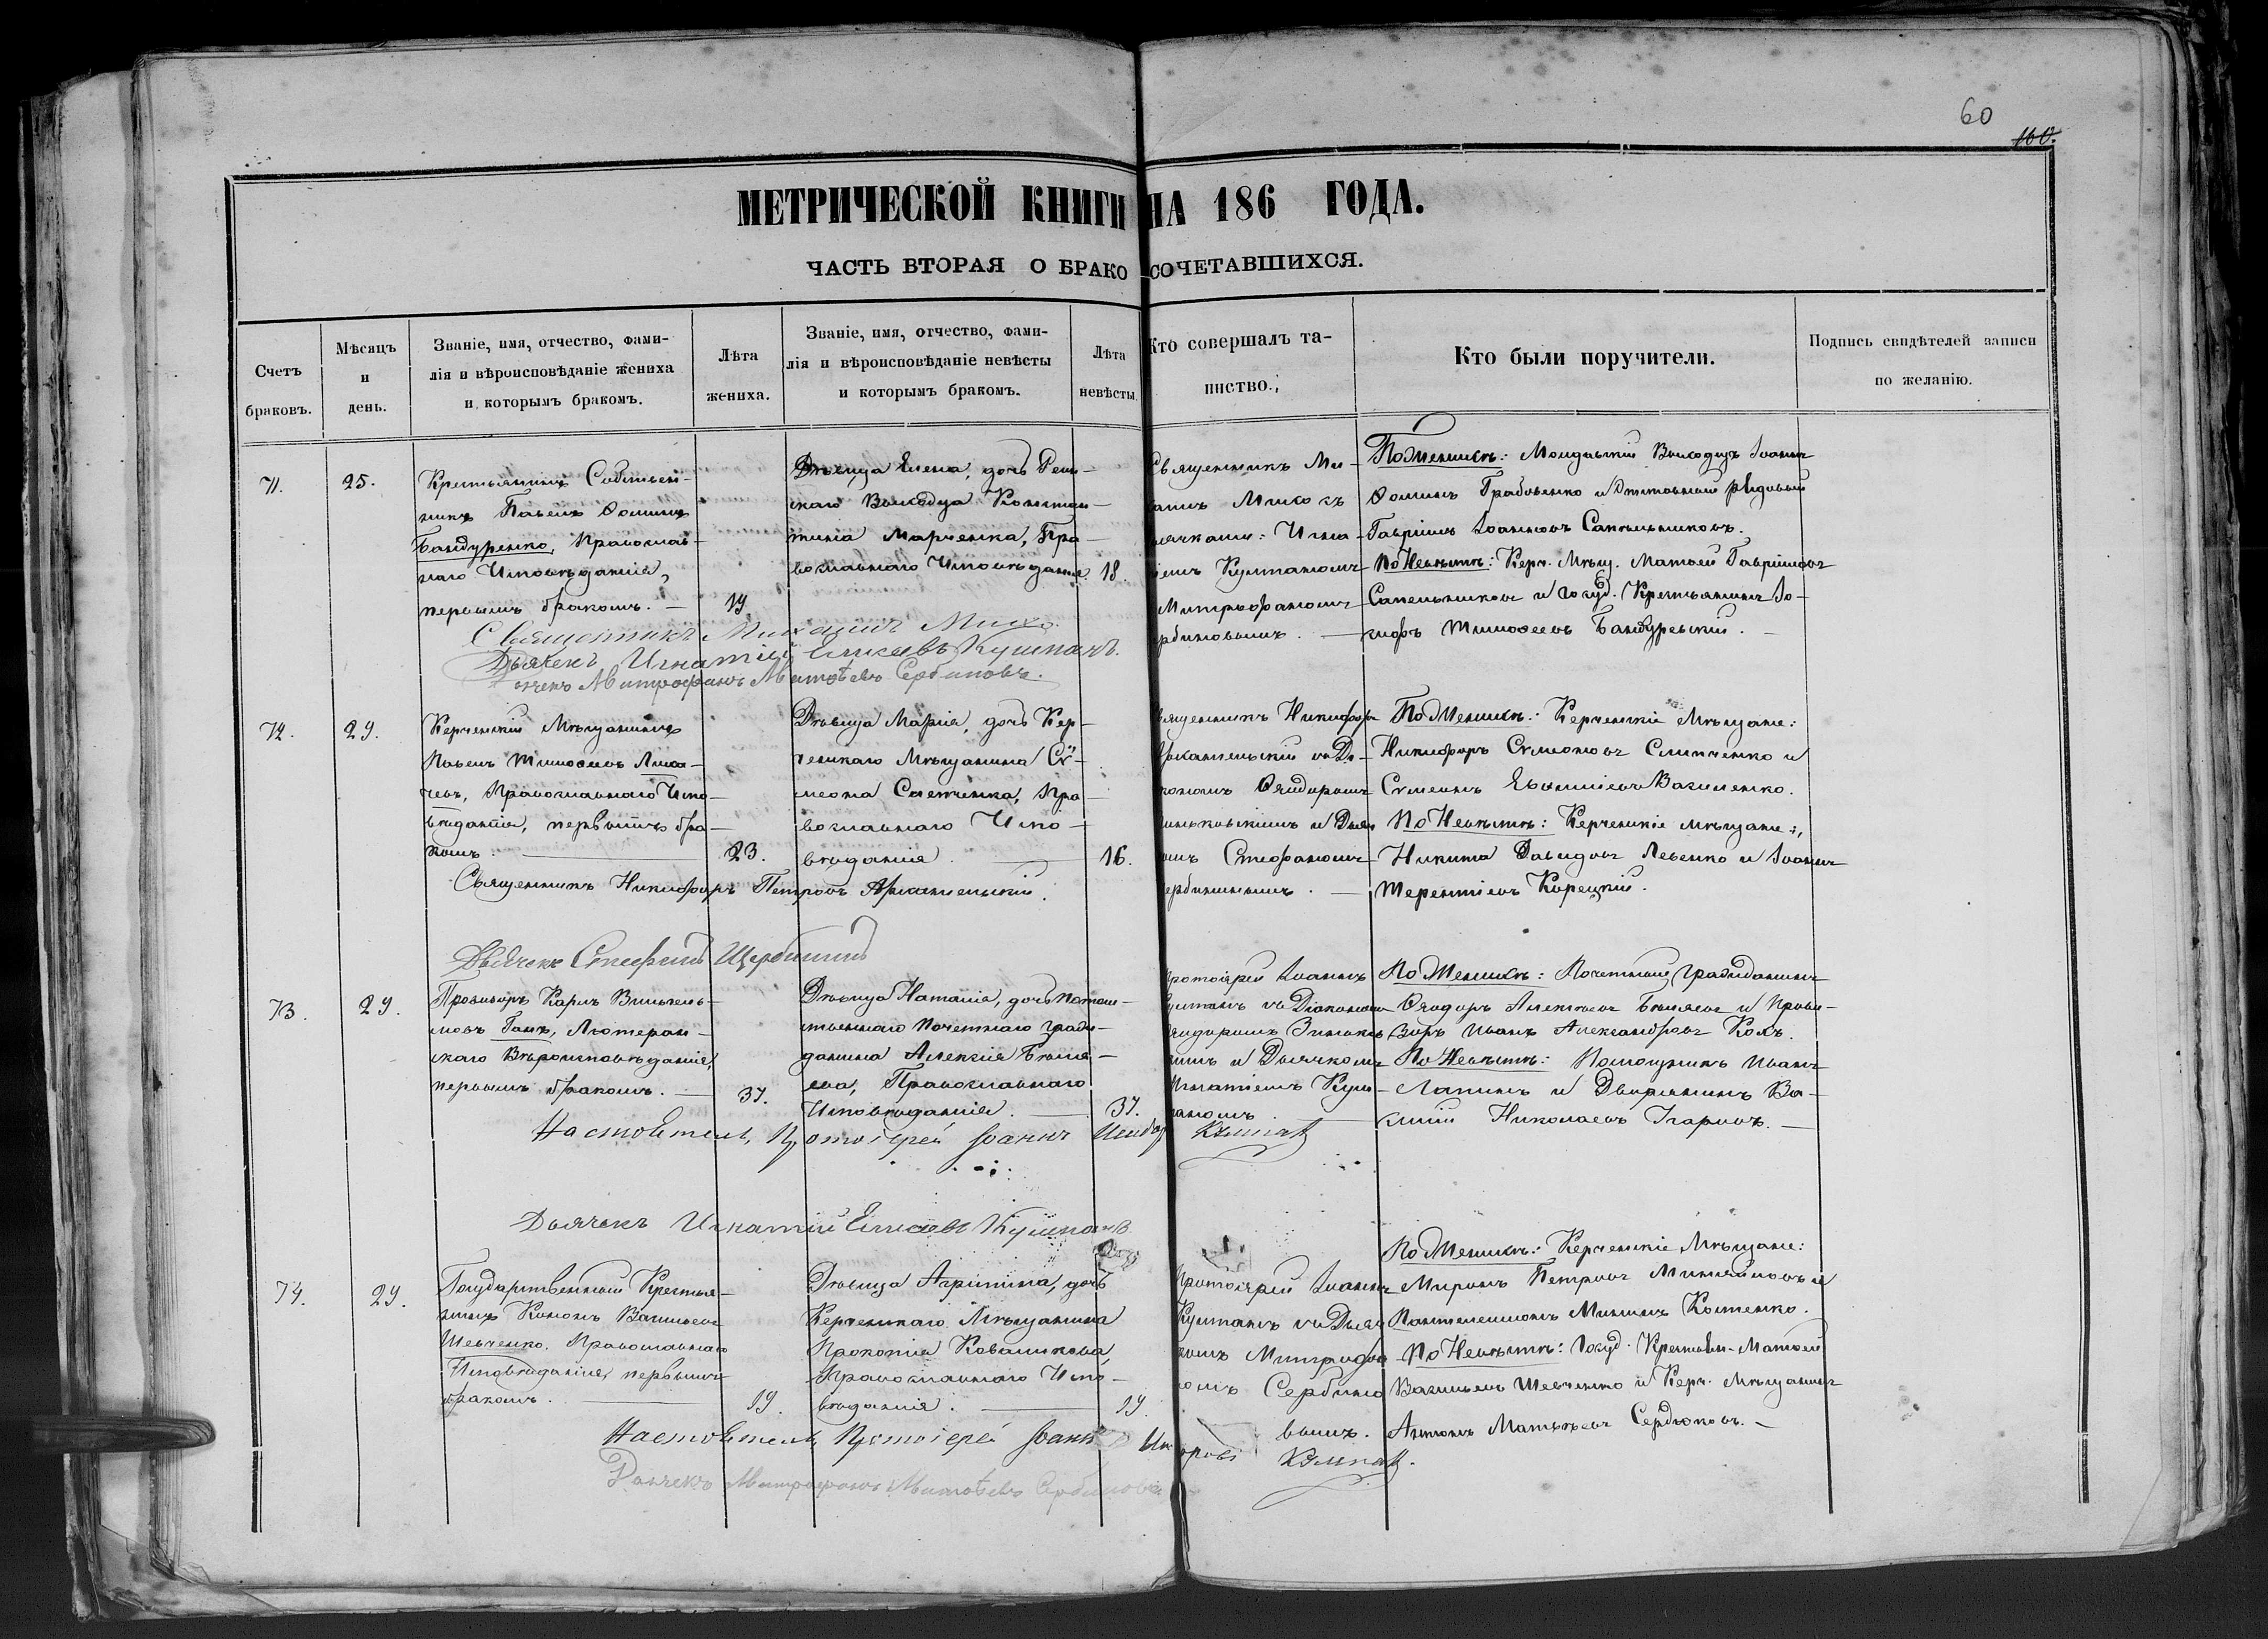 60
160.
МЕТРИЧЕСКОЙ КНИГИ НА 186 ГОДА.
ЧАСТЬ ВТОРАЯ О БРАКОСОЧЕТАВШИХСЯ.
Счетъ браковъ.
Мѣсяцъ и день.
Званіе, имя, отчество, фами-
лія и вѣроисповѣданіе жениха
и которымъ бракомъ.
Лѣта
жениха.
Званіе, имя, отчество, фами-
лія и вѣроисповѣданіе невѣсты
и которымъ бракомъ.
Лѣта
невѣсты.
Кто совершалъ та-
инство.
Кто были поручители.
Подпись свидѣтелей записи
по желанію.
71.
25.
Крестьянинъ Собствен-
никъ Павелъ Ѳоминъ
Бандуренко, Православ-
наго Исповѣданія,
первымъ бракомъ. —
19.
Дѣвица Елена, дочь
скаго Выходца Констан-
тина Марченка, Пра-
вославнаго Исповѣданія.
18.
Священникъ Ми-
хаилъ Мико съ
Игна-
тіемъ Кушпакомъ
Митрофаномъ
ербиновымъ. —
По Женихѣ: Молдавскій Выходецъ Іоаннъ
Ѳоминъ Грабовенко и Отставный рядовый
Гавріилъ Іоанновъ Сапельниковъ.
По Невѣстѣ: Керч. Мѣщ. Матѳей Гавріиловъ
Сапельниковъ и Госуд. Крестьянинъ Іо-
сифъ Тимоѳеевъ Бандуревскій. —
Священникъ Михаилъ Мико.
Дьячекъ Игнатій Елисеевъ Кушпакъ.
Дьячекъ Митрофанъ Матѳѣевъ Сербиновъ.
72.
29.
Керченскій Мѣщанинъ
Павелъ Тимоѳеевъ Лиха-
чевъ, Православнаго Испо-
вѣданія, первымъ бра-
комъ. —
23.
Дѣвица Марія, дочь Кер-
ченскаго Мѣщанина Си-
меона Слетченка, Пра-
вославнаго Испо-
вѣданія. —
16.
Священникъ Никифоръ
Архангельскій съ Ді-
кономъ Ѳеодоромъ
иньковскимъ и Дьяч
омъ Стефаномъ
ербининымъ. —
По Женихѣ: Керченскіе Мѣщане:
Никифоръ Симеоновъ Слипченко и
Симеонъ Василенко.
По Невѣстѣ: Керченскіе Мѣщане:
Никита Давидовъ Левенко и Іоаннъ
Терентіевъ Корецкій.
Священникъ Никифоръ Петровъ Архангельскій.
Дьячекъ Стефанъ Щербининъ
73.
29.
Провизоръ Карлъ Вильгель-
мовъ Ганъ, Лютеран-
скаго Вѣроисповѣданія,
первымъ бракомъ. —
37.
Дѣвица Наталія, дочь Потом-
ственнаго Почетнаго Граж-
данина Алексія Бѣля-
ева, Православнаго
Исповѣданія. —
37.
Протоіерей Іоаннъ
Кушпакъ съ Діакономъ
Ѳеодоромъ Зиньков
кимъ и Дьячкомъ
Игнатіемъ Куш-
пакомъ.
По Женихѣ: Почетный Гражданинъ
Ѳеодоръ Алексѣевъ Бѣляевъ и Прови-
зоръ Иванъ Александровъ Кохъ.
По Невѣстѣ: Помощникъ Иванъ
Лапинъ и Дворянинъ Ва-
силій Николаевъ —
Настоятель, Протоіерей Іоаннъ Исидор Кушпакъ
Дьячекъ Игнатій Елисеевъ Кушпакъ
74.
29.
Государственный Крестья-
нинъ Кононъ Васильевъ
Шевченко, Православнаго
Исповѣданія, первымъ
бракомъ. —
19.
Дѣвица Агрипина, дочь
Керченскаго Мѣщанина
Прокопія Ковалихова,
Православнаго Испо-
вѣданія. —
19.
Протоіерей Іоаннъ
Кушпакъ съ Дьяч
комъ Митрофа
номъ Сербино
вымъ.
По Женихѣ: Керченскіе Мѣщане:
Миронъ Петровъ и
Пантелеимонъ Мининъ Костенко.
По Невѣстѣ: Госуд. Крестьян. Матѳей
Васильевъ Шевченко и Керч. Мѣщанинъ
Антонъ Матвѣевъ Сердюковъ. —
Настоятель, Протоіерей Іоаннъ Кушпакъ.
Дьячекъ Митрофанъ Матѳѣевъ Сербиновъ